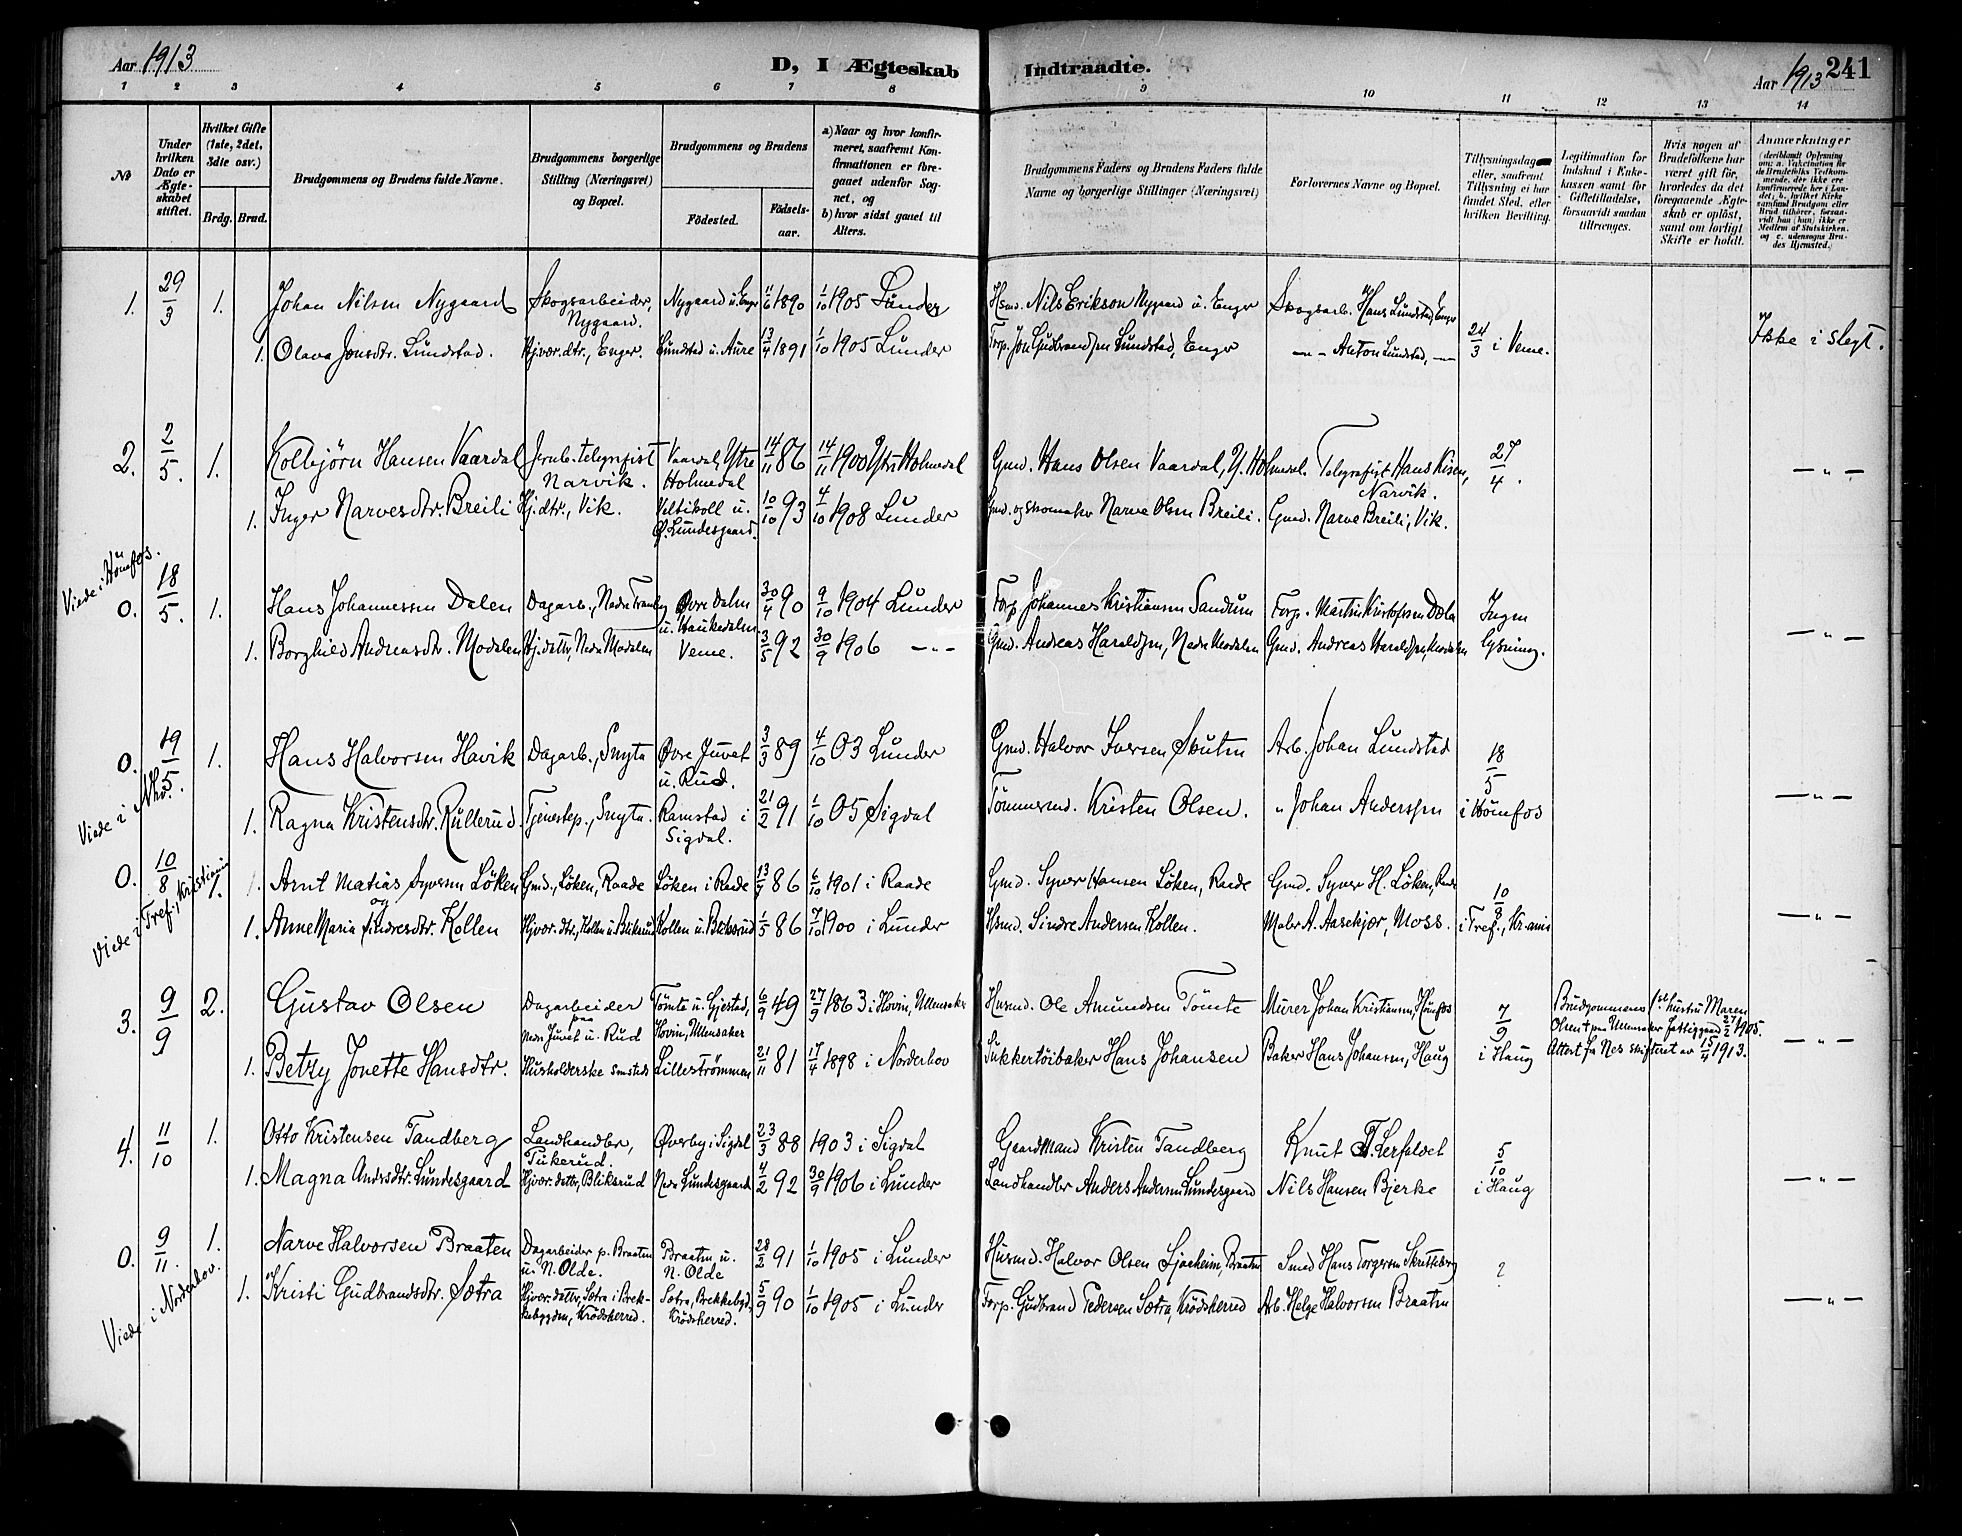 Aar 1913
D, I Ægteskab Indtraadte.
Aar 1913 241
1 2 3 4 5 6 7 8 9 10 11 12 13 14
No
Under hvilken Dato er Ægteskabet stiftet.
Hvilket Gifte (1ste, 2det, 3die osv.)
Brdg. Brud.
Brudgommens og Brudens fulde Navne.
Brudgommens borgerlige Stilling (Næringsvei) og Bopæl.
Brudgommens og Brudens
Födested. Födselsaar.
a) Naar og hvor konfirmeret, saafremt Konfirmationen er foregaaet udenfor Sognet, og
b) hvor sidst gaaet til Alters.
Brudgommens Faders og Brudens Faders fulde Navne og borgerlige Stillinger (Næringsvei)
Forlovernes Navne og Bopæl.
Tillysningsdag eller, saafremt Tillysning ei har fundet Sted, efter hvilken Bevilling.
Legitimation for Indskud i Enkekassen samt for Giftetilladelse, forsaavidt saadan tiltrænges.
Hvis nogen af Brudefolkene har været gift før, hvorledes da det foregaaende Ægteskab er oplöst, samt om lovligt Skifte er holdt.
Anmærkninger
1. 29/3 1. Johan Nilsen Nygaard Skogsarbeider, Nygaard. Nygaard u. Enger 1890 1/10 1905 Lunder Hsmd. Nils Erikson Nygaard u. Enger Skogsarb. Hans Lundstad, Enger
1. Olava Jonsdtr. Lundstad. Hjvær. dtr., Enger. Lundstad u. Aure 13/4 1891 1/10 1905 Lunder Forp. Jon Gudbrandsen Lundstad, Enger —"— Anton Lundstad, — 24/3 i Veme. Ikke i slegt.
2. 2/5. 1. Kolbjörn Hansen Vaardal Jernb. telegrafist Narvik. Vaardal, Ytre Holmedal 14/11 86 14/11 1900 Ytre Holmedal Gmd. Hans Olsen Vaardal, Y. Holmedal. Telegrafist Hans Kisen, Narvik. 27/4. —"—
1. Inger Narvesdtr. Breili Hj. dtr., Vik. Veltikoll u. Ø. Lundesgaard. 10/10 93 4/10 1908 Lunder Gmd. og skomaker Narve Olsen Breili. Gmd. Narve Breili, Vik.
Viede i Hönefos.
0. 18/5. 1. Hans Johannessen Dalen Dagarb., Nedre Tranby Øvre Dalen u. Haukedalen 30/4 90 9/10 1904 Lunder Forp. Johannes Kristiansen Sandum Forp. Martin Kristoffersen Dæla Ingen lysning.
1. Borghild Andreasdtr. Modalen Hj. dattr, Nedre Modalen Veme. 3/5 92 30/9 1906 —"— Gmd. Andreas Haraldsen, Nedre Modalen Gmd. Andreas Haraldsen, Modalen —"—
0. 19/5. 1. Hans Halvorsen Havik Dagarb., Snyta Øvre Juvet u. Rud. 3/3 89 4/10 03 Lunder Gmd. Halvor Iversen Skuten Arb. Johan Lundstad 18/5 i Hönefos
Viede i Nhov.
1. Ragna Kristensdtr. Rullerud. Tjenestep., Snyta. Ramstad i Sigdal. 21/2 91 1/10 05 Sigdal Tömmermd. Kristen Olsen. " Johan Anderssen —"—
0. 10/8 1. Arnt Matias Syversen Löken og Gmd., Löken, Raade Löken i Raade 13/9 86 6/10 1901 i Raade Gmd. Syver Hansen Löken, Raade Gmd. Syver H. Löken, Raade 10/8 i Tref., Kr.ania
Viede i Tref., Kristiania
1. Anne Maria Sindresdtr. Kollen Hjvær. dtr., Kollen u. Bliksrud Kollen u. Bliksrud 1/5 86 7/10 1900 i Lunder Hsmd. Sindre Andersen Kollen. Maler A. Aasekjær, Moss. —"—
3. 9/9 2. Gustav Olsen Dagarbeider paa Nedre Juvet u. Rud Tömte u. Gjestad, Hovin, Ullensaker 6/9 49 27/9 1863 i Hovin, Ullensaker Husmd. Ole Amundsen Tömte Murer Johan Kristiansen, Hönefos 7/9 i Haug
Brudgommens 1ste hustru Maren Olsen † paa Ullensaker fattiggaard 27/2 1905. Attest fra Nes skifteret av 15/4 1913.
1. Betzy Jonette Hansdtr. Husholderske smsteds Lilleströmmen 21/11 81 17/4 1898 i Norderhov Sukkertöibaker Hans Johansen Baker Hans Johansen, Haug —"—
4. 11/10 1. Otto Kristensen Tandberg Landhandler, Tukerud. Øverby i Sigdal 23/3 88 1903 i Sigdal Gaardmand Kristen Tandberg Knut T. Lerfaldet 5/10 i Haug
1. Magna Andersdtr. Lundesgaard Hjvær. dattr, Bliksrud Nedre Lundesgaard 4/2 92 30/9 1906 i Lunder Landhandler Anders Andersen Lundesgaard Nils Hansen Bjerke —"—
0. 9/11. 1. Narve Halvorsen Braaten Dagarbeider p. Braaten u. N. Olde. Braaten u. N. Olde 28/2 91 1/10 1905 i Lunder Husmd. Halvor Olsen Sjøheim, Braaten Smed Hans Torgersen Skretteberg ?
Viede i Norderhov.
1. Kristi Gudbrandsdtr. Sætra Hjvær. dattr, Sætra i Brekkebygden, Krödsherred. Sætra, Brekkebygd, Krödsherred. 5/9 90 1/10 1905 i Lunder Forp. Gudbrand Pedersen Sætra, Krödsherred Arb. Helge Halvorsen Braaten —"—